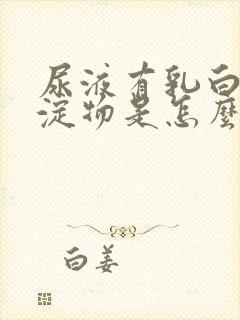 尿液有乳白
淀物是怎麼
白姜